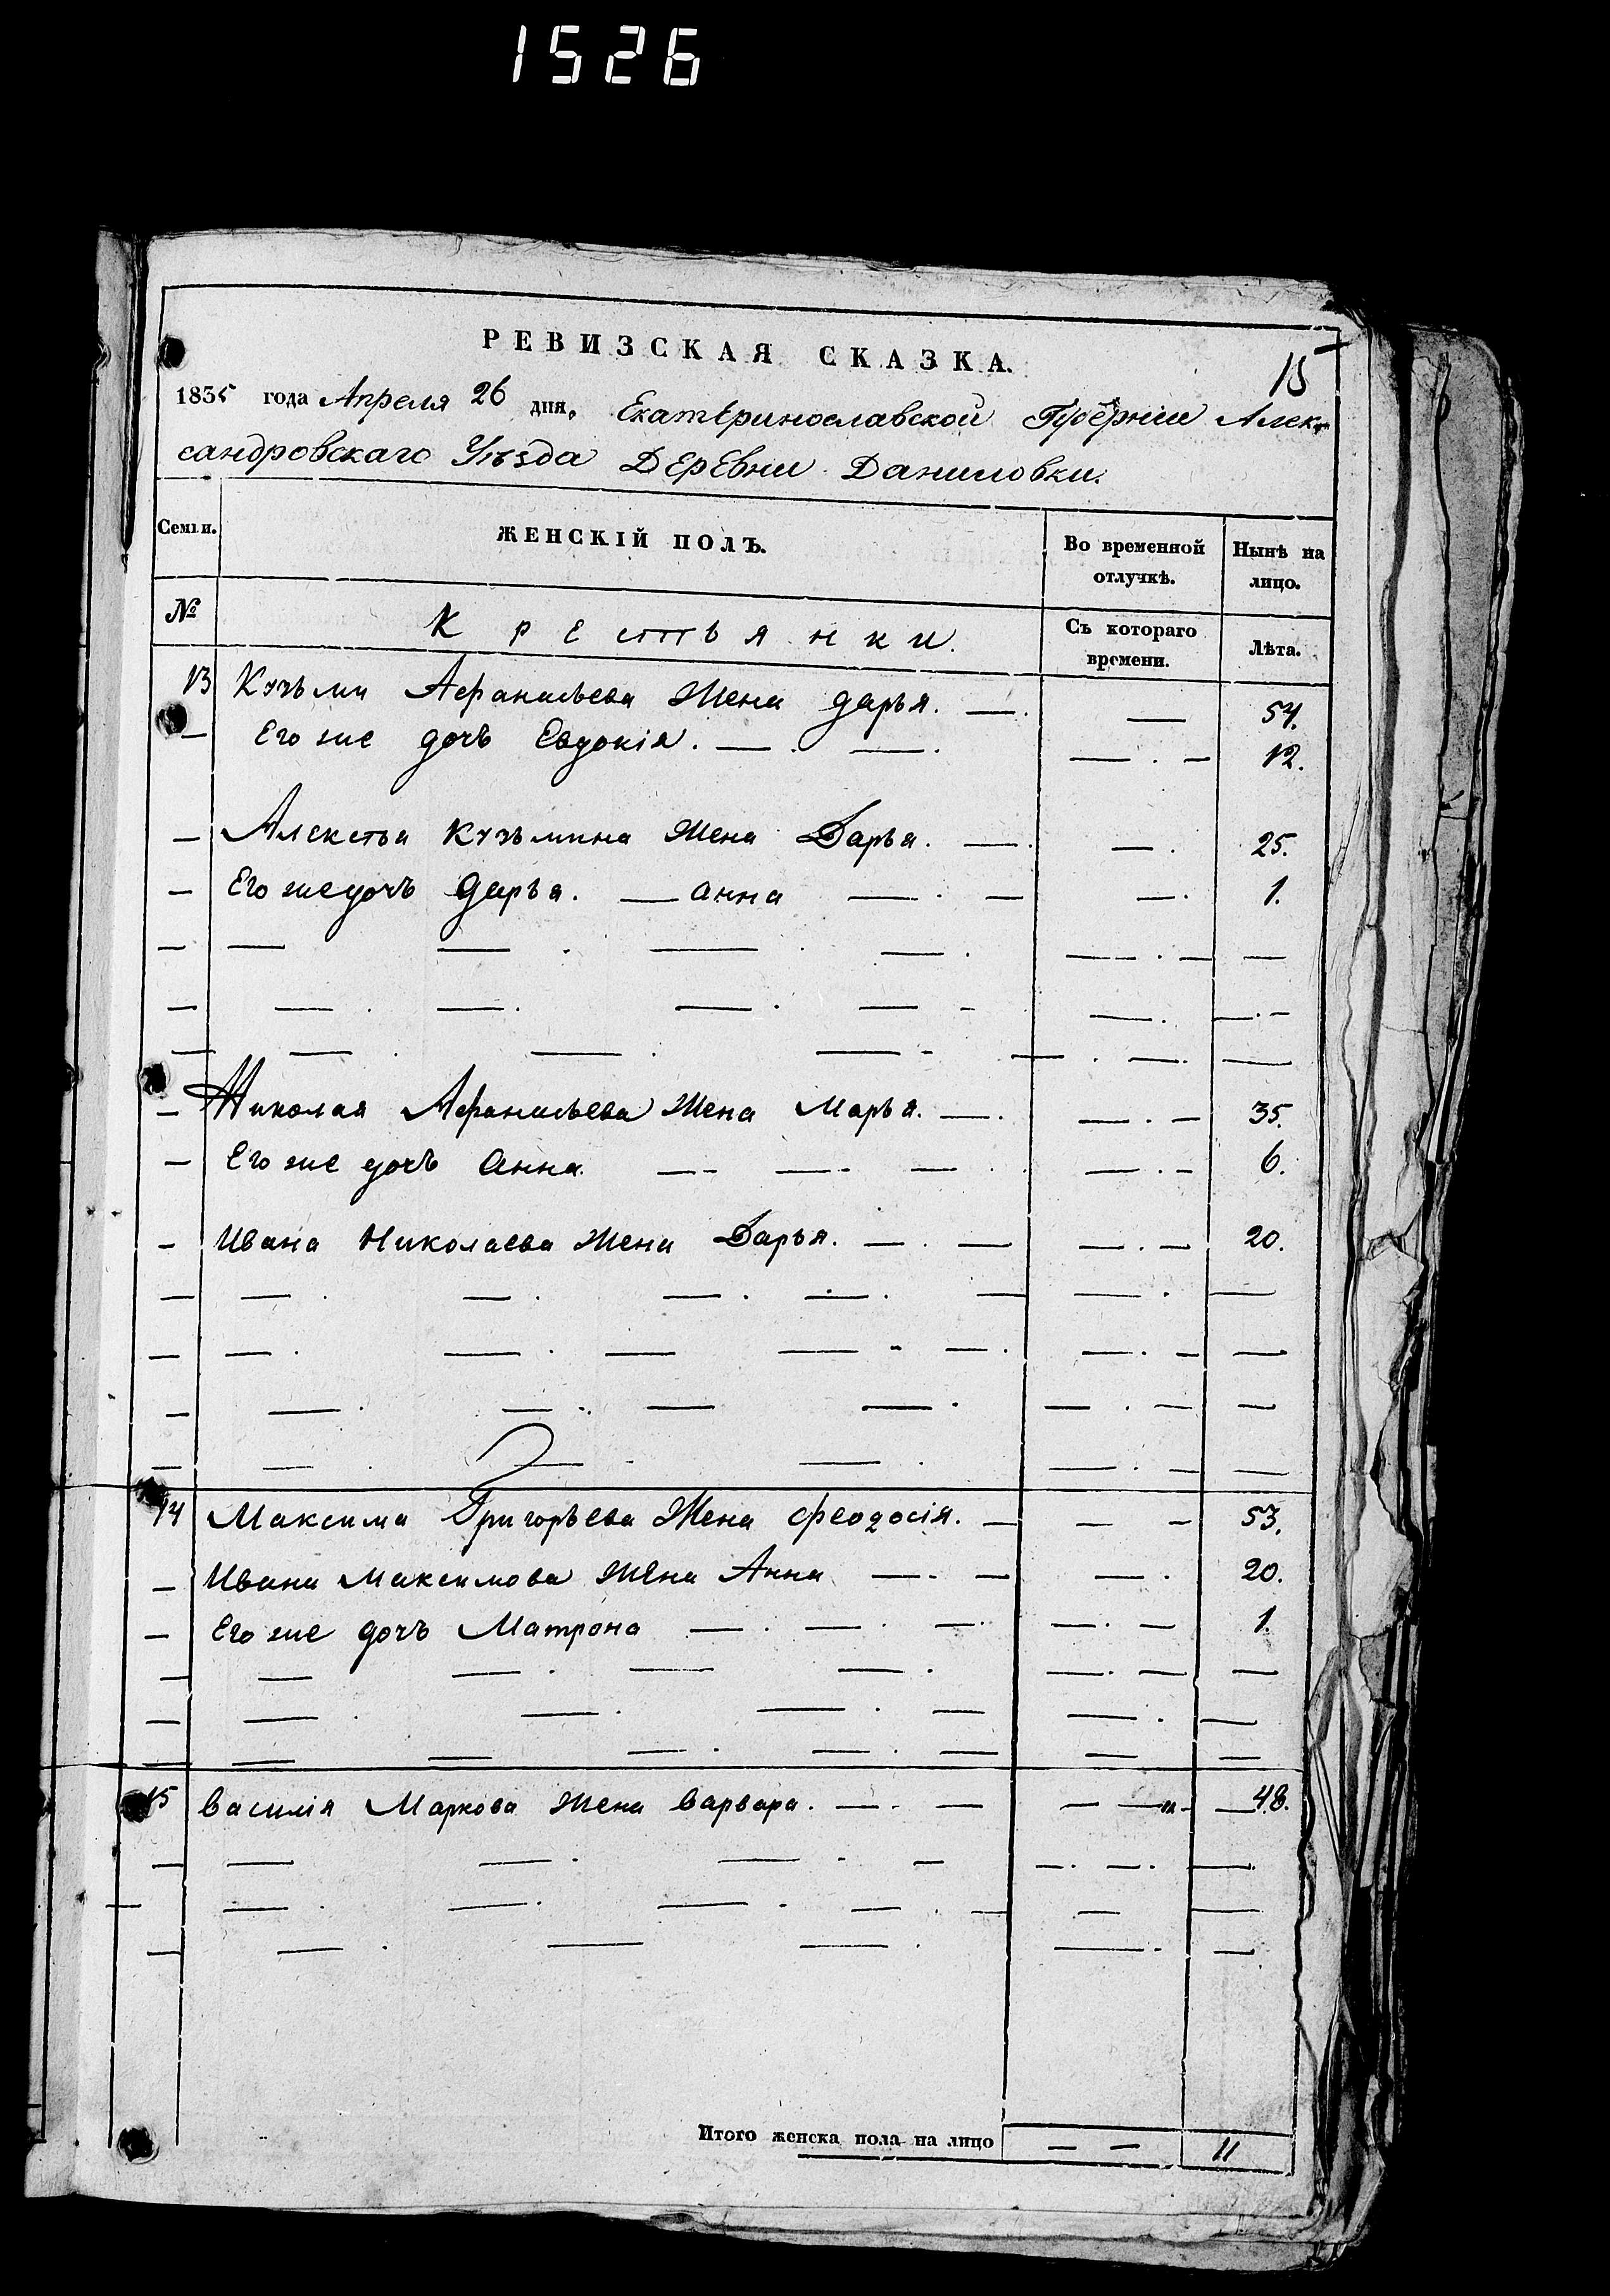 1526
РЕВИЗСКАЯ СКАЗКА.
15
1835 года Апреля 26 дня, Екатеринославской Губерніи Алек-
сандровскаго Уѣзда Деревни Даниловки.
Семьи. ЖЕНСКІЙ ПОЛЪ. Во временной отлучкѣ. Нынѣ на лицо.
№ Крестьянки. Съ котораго времени. Лѣта.
13 Кузьми Афанасьева Жена дарья. — — 54.
— Его же дочь Евдокія. — . — . — . — 12.
— Алексѣя Кузьмина Жена Дарья. — . — . 25.
— Его же дочь Дарья. — анна — . — — . 1.
— Николая Афанасьева Жена Марья. — . — . — 35.
— Его же дочь Анна — - — . — — . — 6.
— Ивана Николаева Жена Дарья. — . — — . — 20.
14 Максима Григорьева Жена Феодосія. — — — 53.
— Ивана Максимова Жена Анна — . — — . 20.
— Его же дочь Матрона — . — . — . — . — 1.
15 Василія Маркова Жена Варвара. — . — — — — 48.
Итого женска пола на лицо — — 11